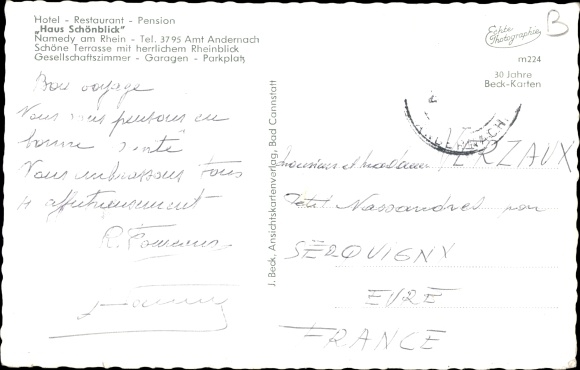 Hotel - Restaurant - Pension
„Haus Schönblick"
Namedy am Rhein - Tel. 3795 Amt Andernach
Schöne Terrasse mit herrlichem Rheinblick
Gesellschaftszimmer - Garagen - Parkplatz
B
Echte Photographie
m224
30 Jahre
Beck-Karten
Bon voyage
Nous vous en
bonne santé
Vous embrassons tous
affectueusement
R.
J. Beck, Ansichtskartenverlag, Bad Cannstatt
ANDERNACH
Monsieur et madame VERZAUX
Petit Nassandres par
SEROUIGNY
EURE
FRANCE